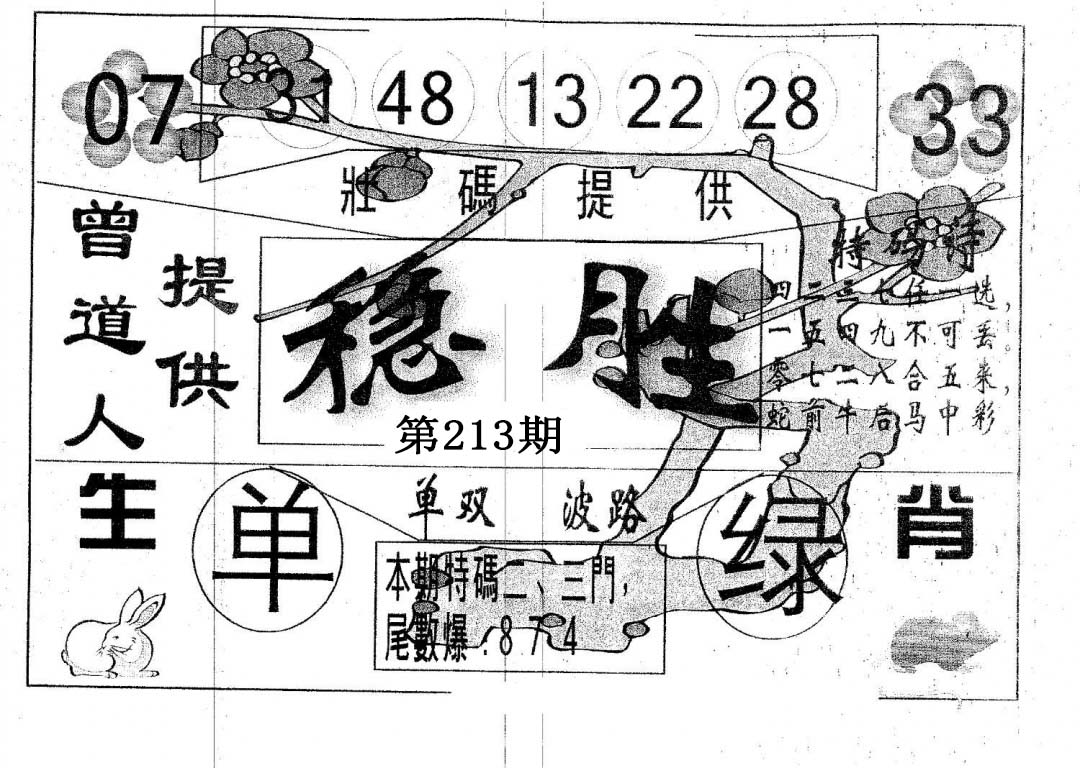 07 31 48 13 22 28 33
壯碼提供
曾道人
提供
特码诗
稳胜
四二三七任一选，
一五四九不可丢。
零七二八合五来，
蛇前牛后马中彩
第213期
生肖
单双 波路
单
绿
本期特碼二、三門，
尾數爆:874